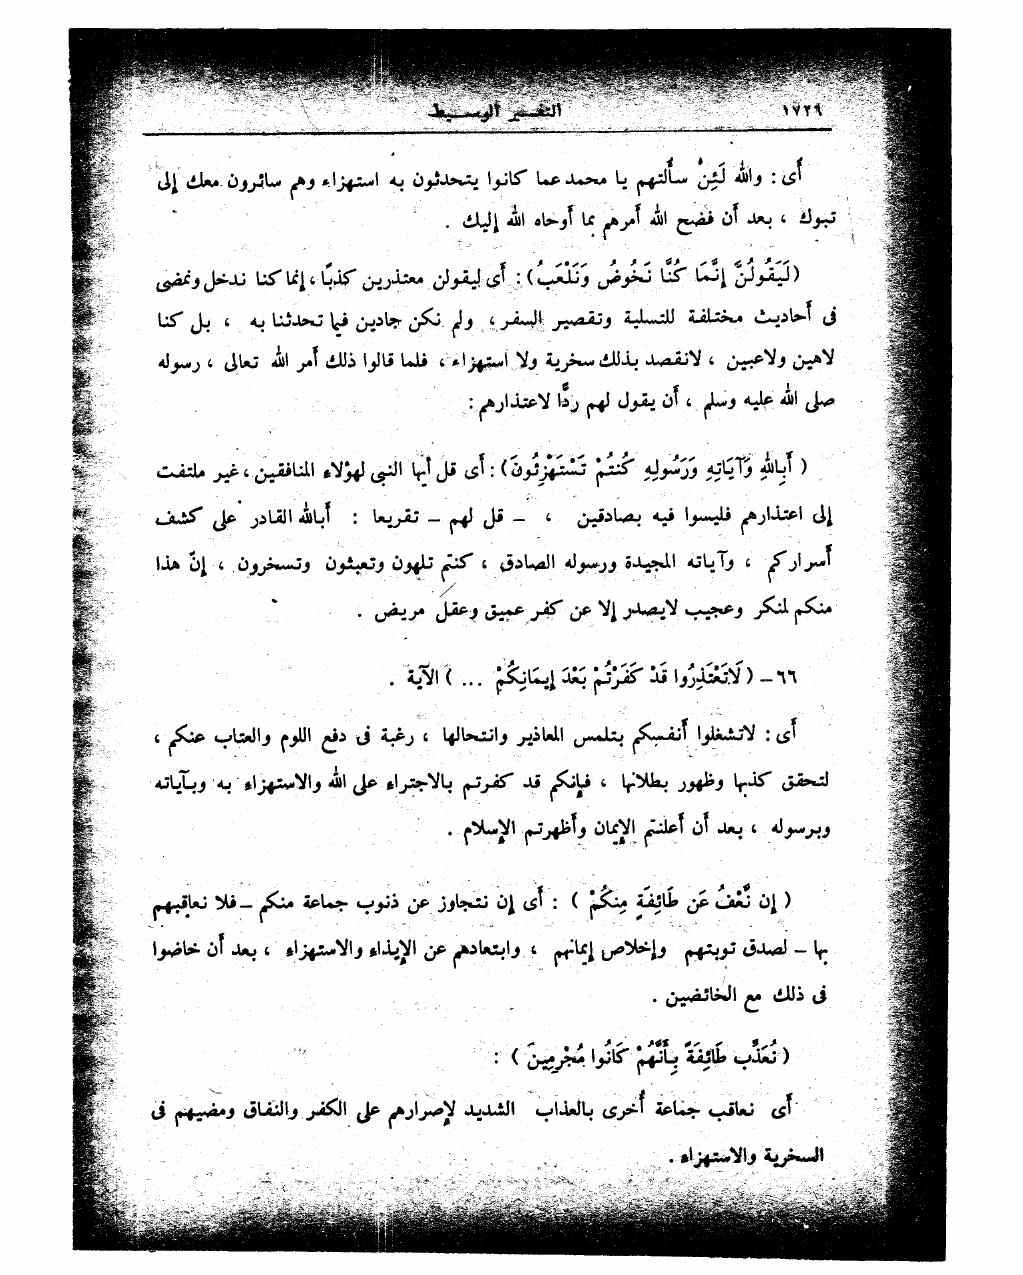 ١٧٢٩
التفسير الوسيط
أى : والله لَئِنْ سألتهم يا محمد عما كانوا يتحدثون به استهزاء وهم سائرون معك إلى
تبوك ، بعد أن فضح الله أمرهم بما أوحاه الله إليك .
(لَيَقُولُنَّ إِنَّمَا كُنَّا نَخُوضُ وَنَلْعَبُ) : أى ليقولن معتذرين كذبًا ، إنما كنا ندخل ونمضى
فى أحاديث مختلفة للتسلية وتقصير السفر ، ولم نكن جادين فيما تحدثنا به ، بل كنا
لاهين ولاعبين ، لانقصد بذلك سخرية ولا استهزاء ، فلما قالوا ذلك أمر الله تعالى ، رسوله
صلى الله عليه وسلم ، أن يقول لهم ردًّا لاعتذارهم :
( أَبِاللهِ وَآيَاتِهِ وَرَسُولِهِ كُنتُمْ تَسْتَهْزِئُونَ) : أى قل أيها النبى لهؤلاء المنافقين ، غير ملتفت
إلى اعتذارهم فليسوا فيه بصادقين ، – قل لهم – تقريعا : أبالله القادر على كشف
أسراركم ، وآياته المجيدة ورسوله الصادق ، كنتم تلهون وتعبثون وتسخرون ، إنّ هذا
منكم لمنكر وعجيب لايصدر إلا عن كفر عميق وعقل مريض .
٦٦ – ( لَاتَعْتَذِرُوا قَدْ كَفَرْتُمْ بَعْدَ إِيمَانِكُمْ ... ) الآية .
أى : لاتشغلوا أنفسكم بتلمس المعاذير وانتحالها ، رغبة فى دفع اللوم والعتاب عنكم ،
لتحقق كذبها وظهور بطلانها ، فإنكم قد كفرتم بالاجتراء على الله والاستهزاء به وبآياته
وبرسوله ، بعد أن أعلنتم الإيمان وأظهرتم الإسلام .
( إِن نَّعْفُ عَن طَائِفَةٍ مِنكُمْ ) : أى إن نتجاوز عن ذنوب جماعة منكم – فلا نعاقبهم
بها – لصدق توبتهم وإخلاص إيمانهم ، وابتعادهم عن الإيذاء والاستهزاء ، بعد أن خاضوا
فى ذلك مع الخائضين .
( نُعَذِّب طَائِفَةً بِأَنَّهُمْ كَانُوا مُجْرِمِينَ ) :
أى نعاقب جماعة أُخرى بالعذاب الشديد لإصرارهم على الكفر والنفاق ومضيهم فى
السخرية والاستهزاء .